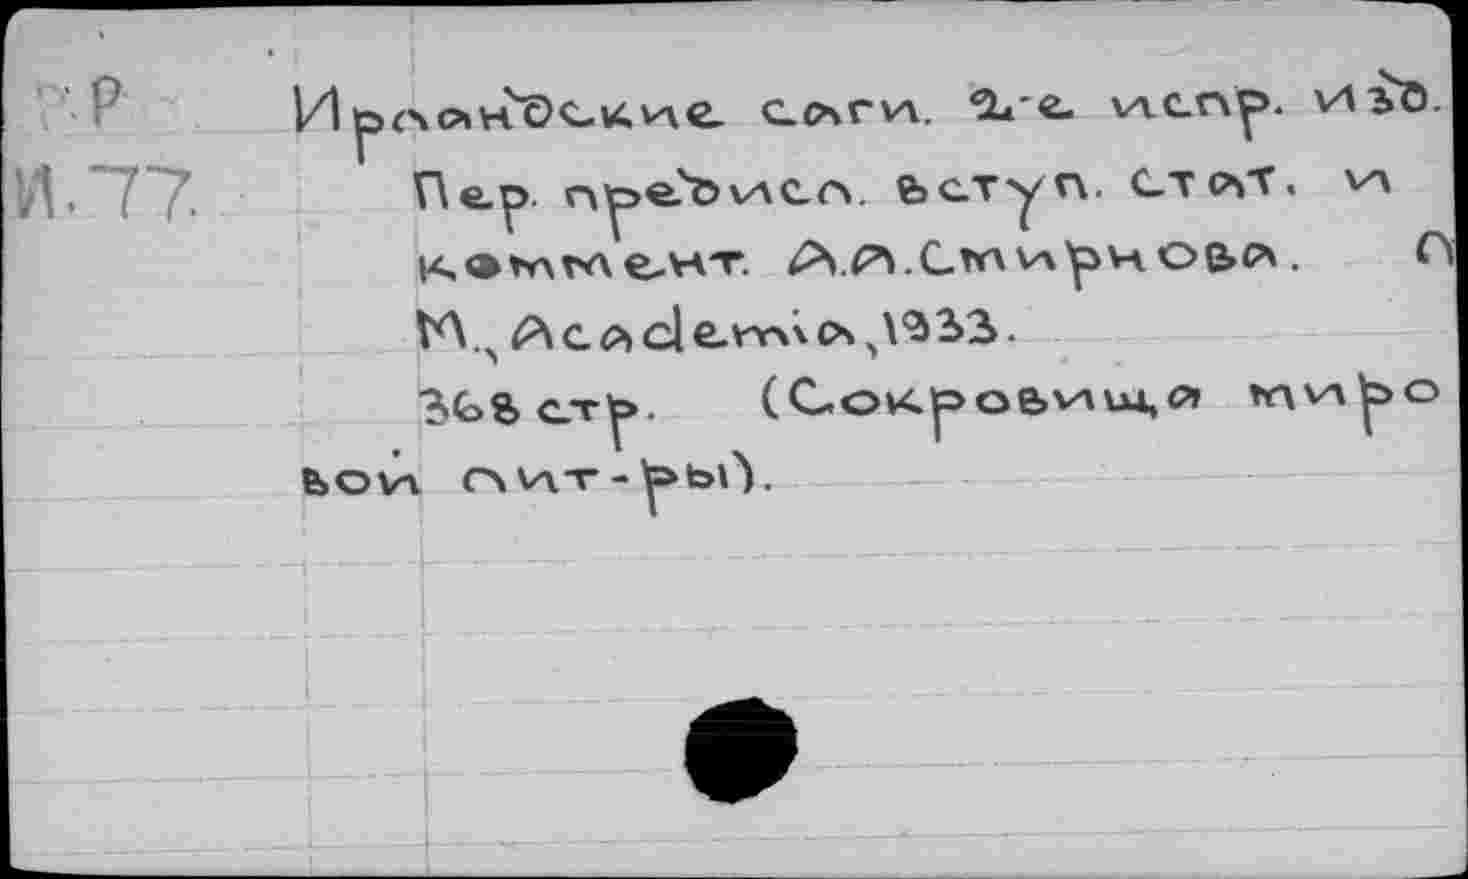 Р Ирландские саги. 2-е испр. изд.
И.77. Пер. предисл. вступ. стат. и
коммент. А.А.Смирнова. Л
М., Academia, 1933.
368 стр. (Сокровища миро
вой лит-ры).